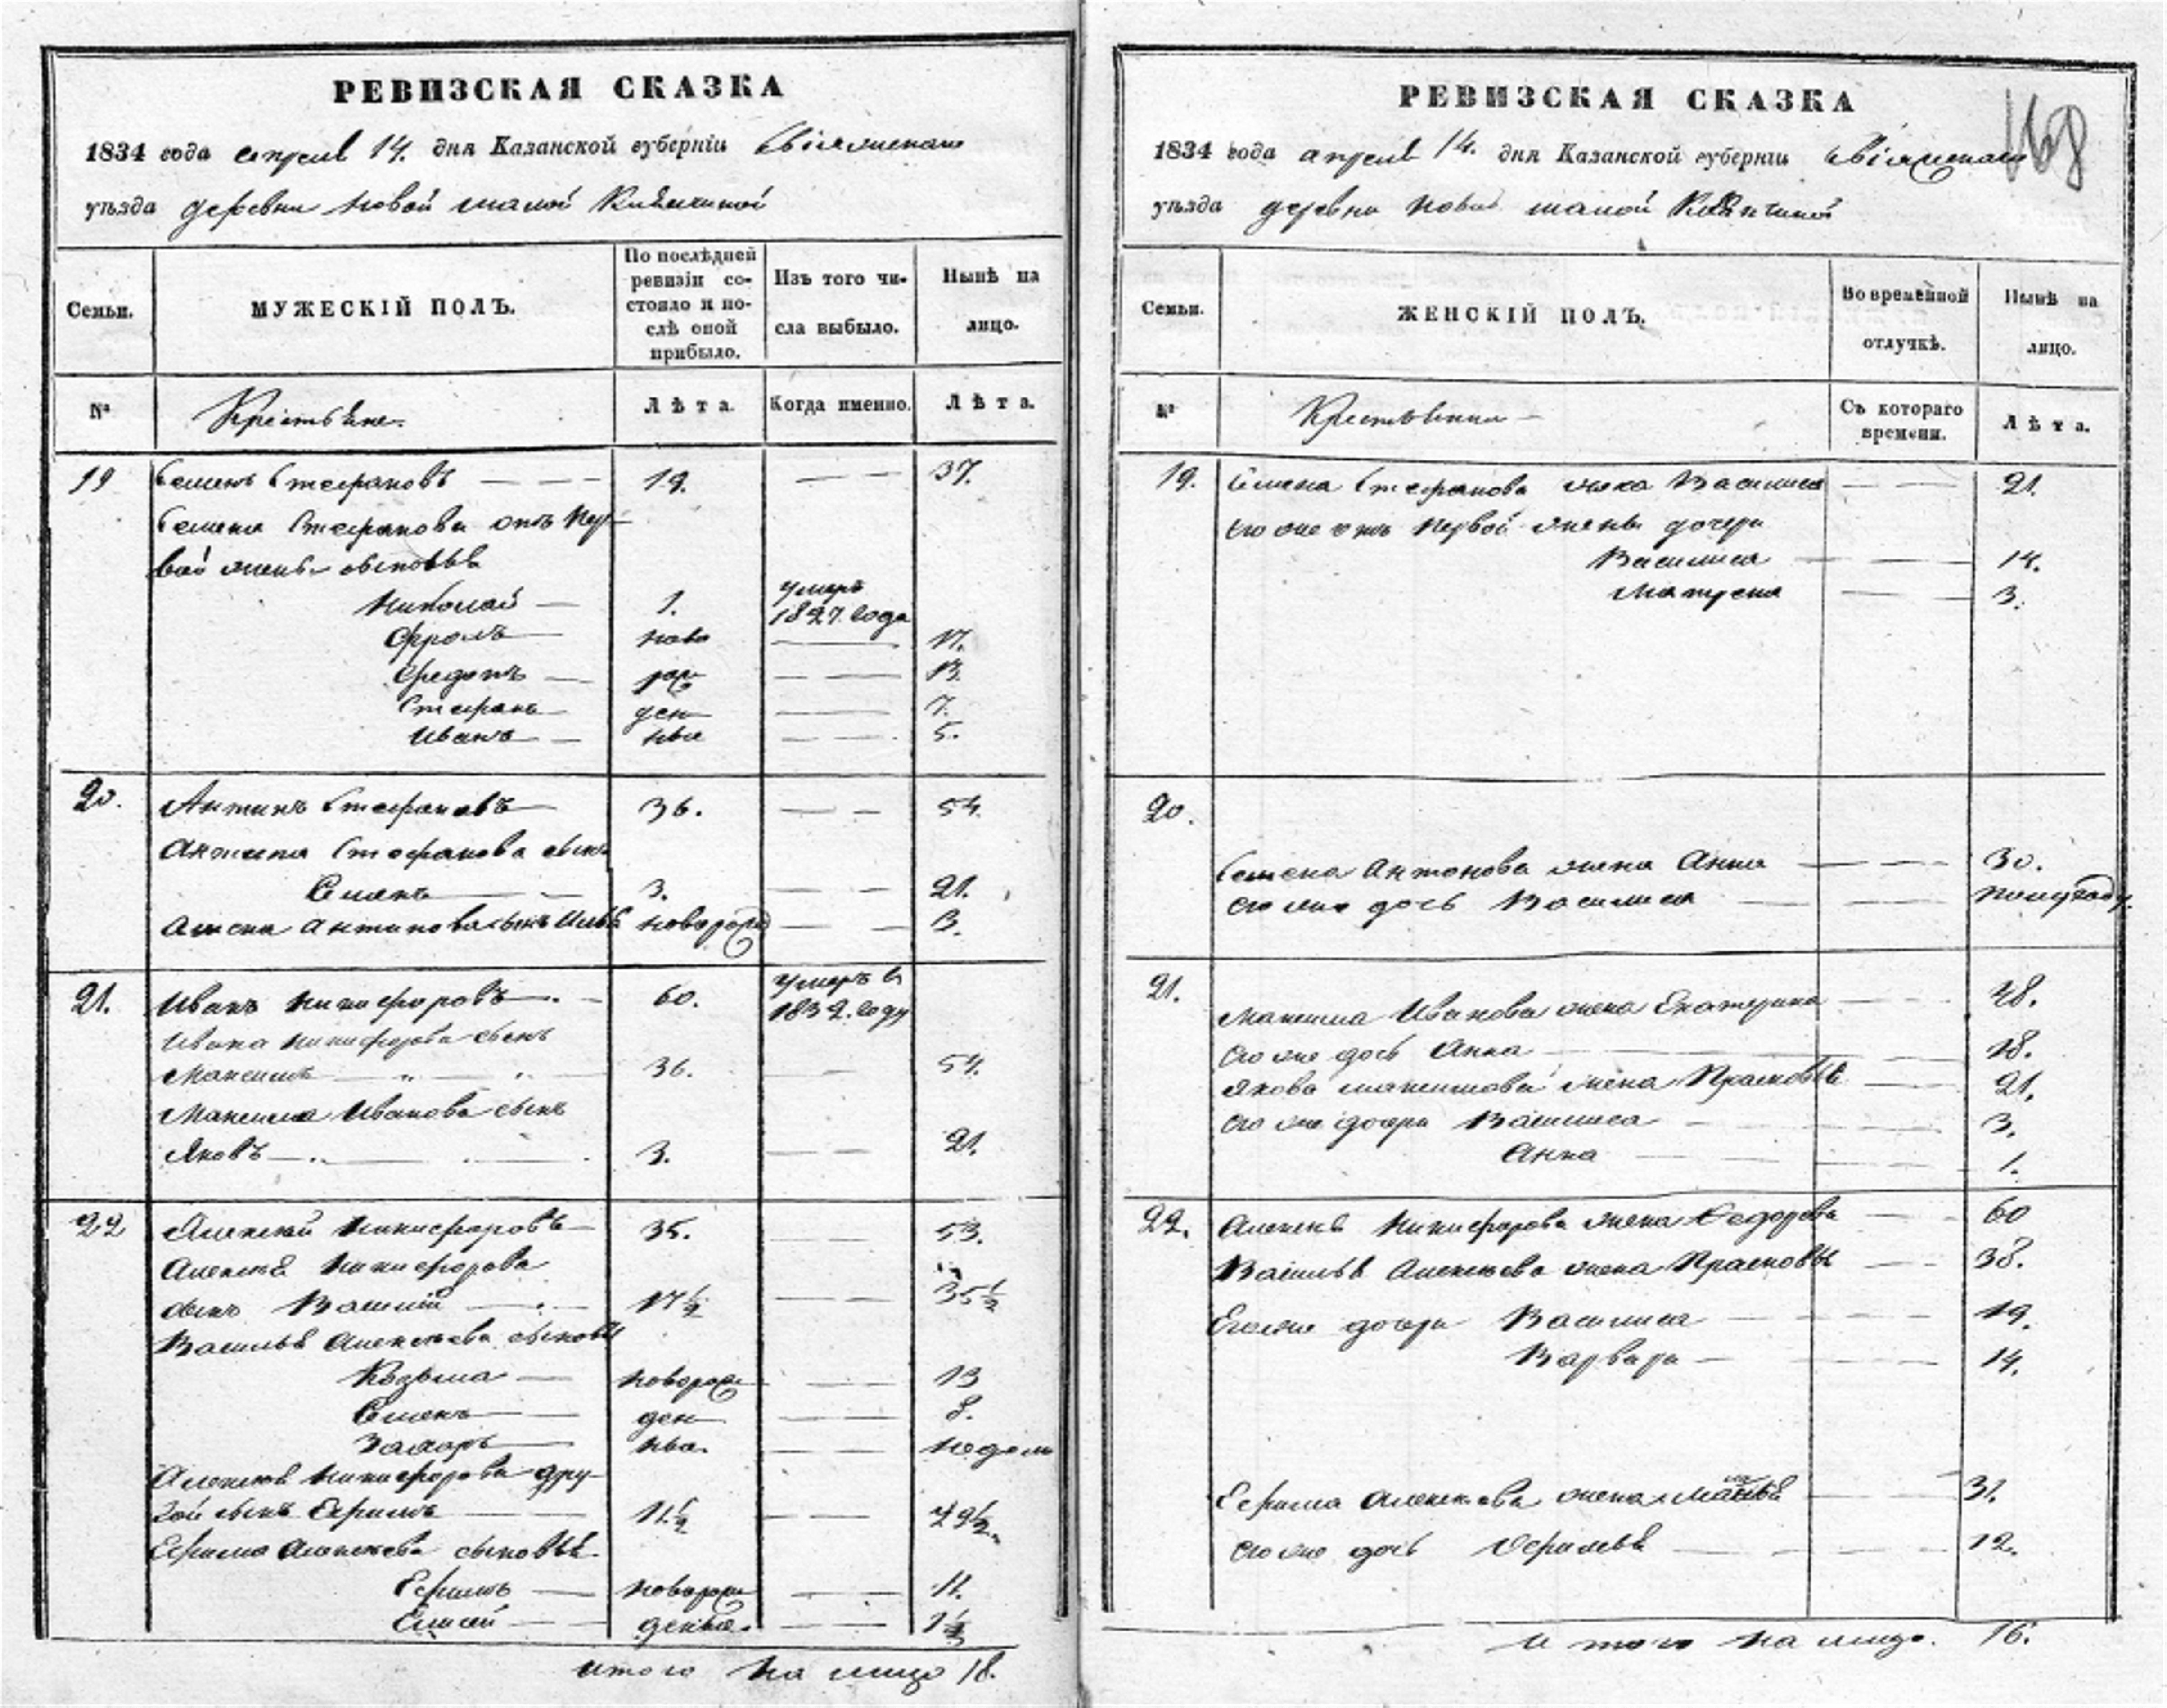 РЕВИЗСКАЯ СКАЗКА
1834 года апреля 14. дня Казанской губернiи Свiяжскаго
уѣзда деревни Новой
Семьи.
МУЖЕСКIЙ ПОЛЪ.
По послѣдней
ревизiи со-
стояло и по-
слѣ оной
прибыло.
Изъ того чи-
сла выбыло.
Нынѣ на
лицо.
№
Крестьяне.
Лѣта.
Когда именно.
Лѣта.
19 Семенъ Стефановъ 19. 37.
Семена Стефанова отъ пер-
вой жены сыновья
Николай 1. умеръ 1827. года
Фролъ ново 17.
Федотъ рож 13.
Стефанъ ден 7.
Иванъ ные 5.
20. Антипъ Стефановъ 36. 54.
Антипа Стефанова сынъ
Семенъ 3. 21.
Семена Антипова сынъ новорож 3.
21. Иванъ Никифоровъ 60. умеръ в 1832. году
Ивана Никифорова сынъ
Максимъ 36. 54.
Максима Иванова сынъ
Яковъ 3. 21.
22 Алексей Никифоровъ 35. 53.
Алексея Никифорова
сынъ Василий 17½ 35½
Василья Алексеева сыновья
Козьма новорож 13
Семенъ ден 8.
Захаръ ные. недели
Алексея Никифорова дру-
гой сынъ Ефимъ 11½ 29½
Ефима Алексеева сыновья
Ефимъ новорож 11.
денные.
итого на лицо 18.
РЕВИЗСКАЯ СКАЗКА
168
1834 года апреля 14. дня Казанской губернiи Свiяжскаго
уѣзда деревни Новой
Семьи.
ЖЕНСКIЙ ПОЛЪ.
Во временной
отлучкѣ.
Нынѣ на
лицо.
№
Съ котораго
времени.
Лѣта.
19. Семена Стефанова жена Василиса 21.
его же отъ первой жены дочери
Василиса 14.
Матрена 3.
20.
Семена Антонова жена Анна 30.
его же дочь Василиса полугоду.
21.
Максима Иванова жена Екатерина 48.
его же дочь Анна 18.
Якова Максимова жена Прасковья 21.
его же дочери Василиса 3.
Анна 1.
22. Алексея Никифорова жена Федорова 60
Василья Алексеева жена Прасковья 38.
Его же дочери Василиса 19.
Варвара 14.
Ефима Алексеева жена 31.
его же дочь 12.
итого на лицо. 16.